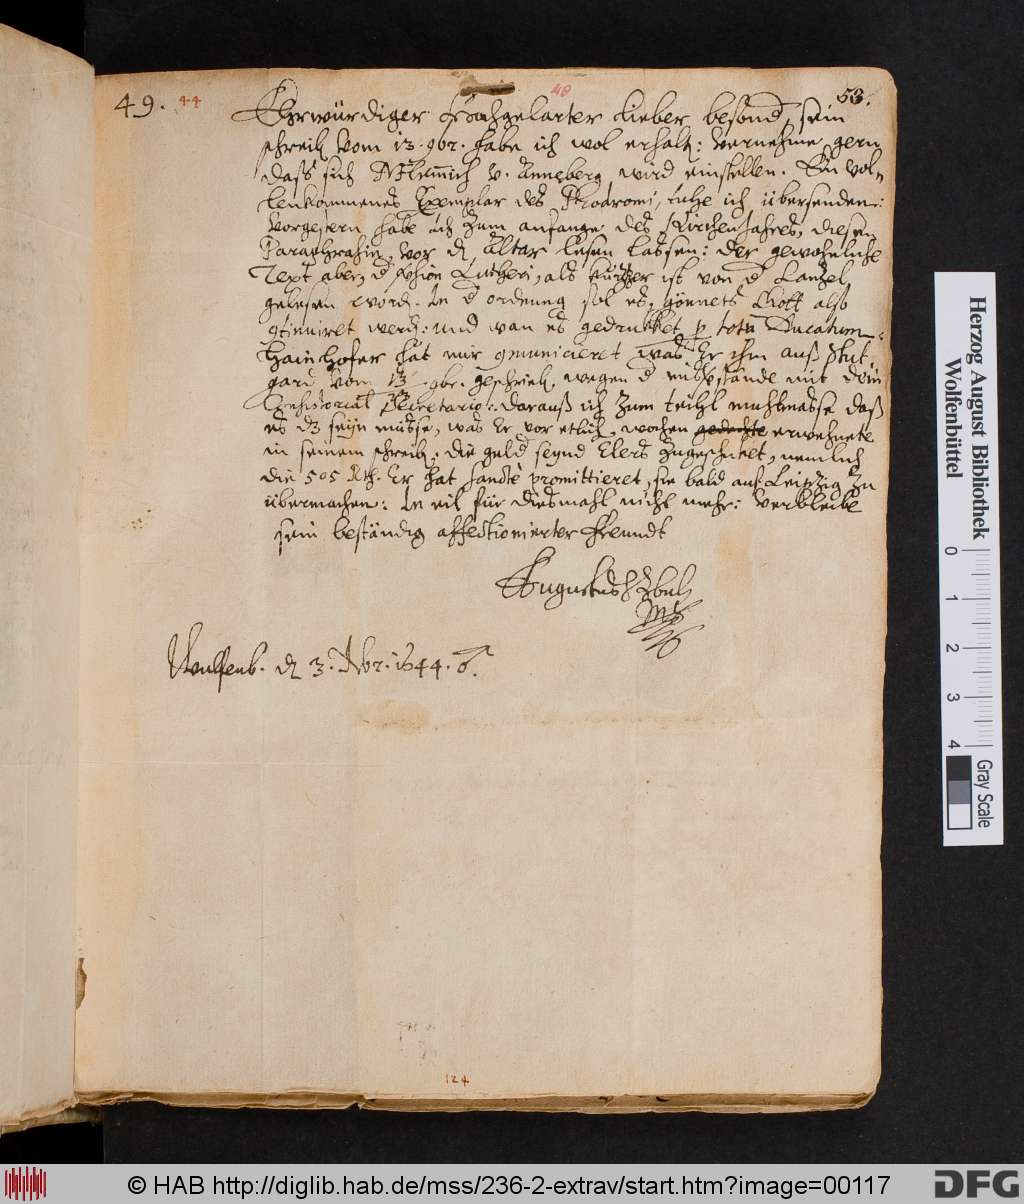 49. 44 48 53.
Ehrwürdiger Hochgelarter lieber besond, sein
schreib vom 13. 9br. habe ich wol erhalt: vernehme gern
daß sich M. Heinrich v. Anneberg wird einstellen. Ein vol-
lenkommenes Exemplar des Prodromi, tuhe ich übersenden:
vorgestern habe ich zum anfange des KirchenJahres, diesen
Paraphrasin, vor d Altar lesen lassen: der gewohnliche
Text aber, d Version Lutheri, als kürtzer ist von d Cantzel
gelesen word. In d ordnung sol es, gönnets Gott also
9tinuiret werd: und wan es gedrukket p totu Ducatum.
Hainhofer hat mir 9municieret was Er ihm auß Stut
gard vom 13 9br. geschrieb, wegen d mit dem
Consistorial Secretario: darauß ich zum teihl muhtmasse daß
es dz seyn müsse, was Er vor etlich wochen gedachte erwehnete
in seinem schreib: die geld seynd Elers zugeschikt, nemlich
die 505 Rth. Er hat promittieret, sie bald auf Leipzig zu
übermachen: In eil für diesmahl nicht mehr: verbleibe
sein beständig affectionierter Freundt
Augustus
Wulfenb. d 3. Xbr. 1644.
124
Herzog August Bibliothek
Wolfenbüttel
0 1 2 3 4
Gray Scale
© HAB http://diglib.hab.de/mss/236-2-extrav/start.htm?image=00117
DFG